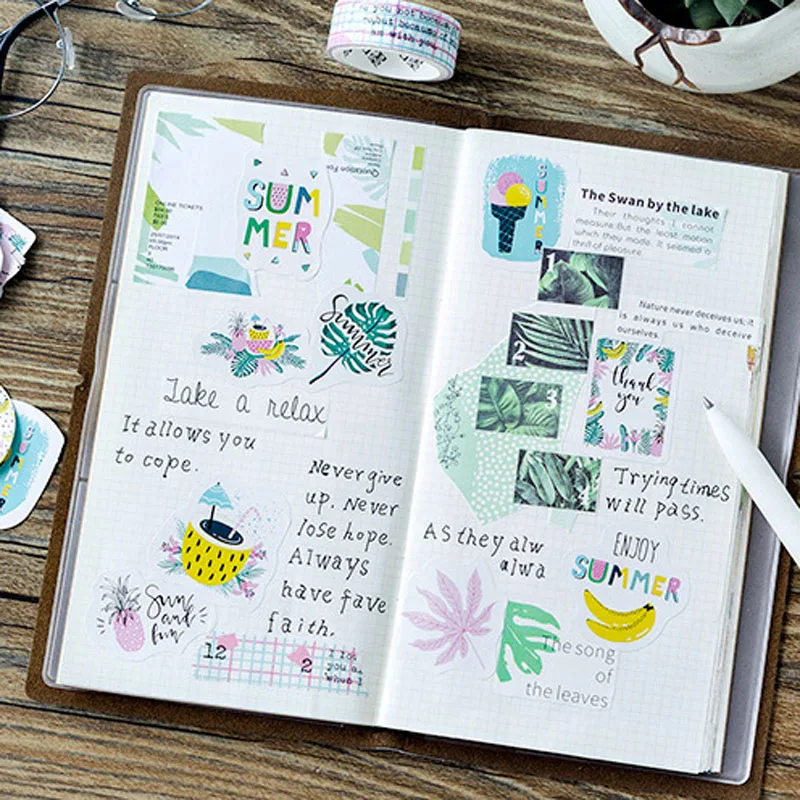 you not because
but because
am with you
SUM
MER
ONLINE TICKETS
Quotation For
Summer
Take a relax
It allows you
to cope.
Never give
up. Never
lose hope.
Always
have fave
faith.
Sun
and
fun
12
2
you a
SUMMER
The Swan by the lake
Their thoughts I cannot
measure.But the least motion
which they made. It seemed a
thrill of pleasure.
1
2
3
4
Nature never deceives us; it
is always us who deceive
ourselves.
thank
you
Trying times
will pass.
As they alw
alwa
ENJOY
SUMMER
The song
of
the leaves
SUMMER